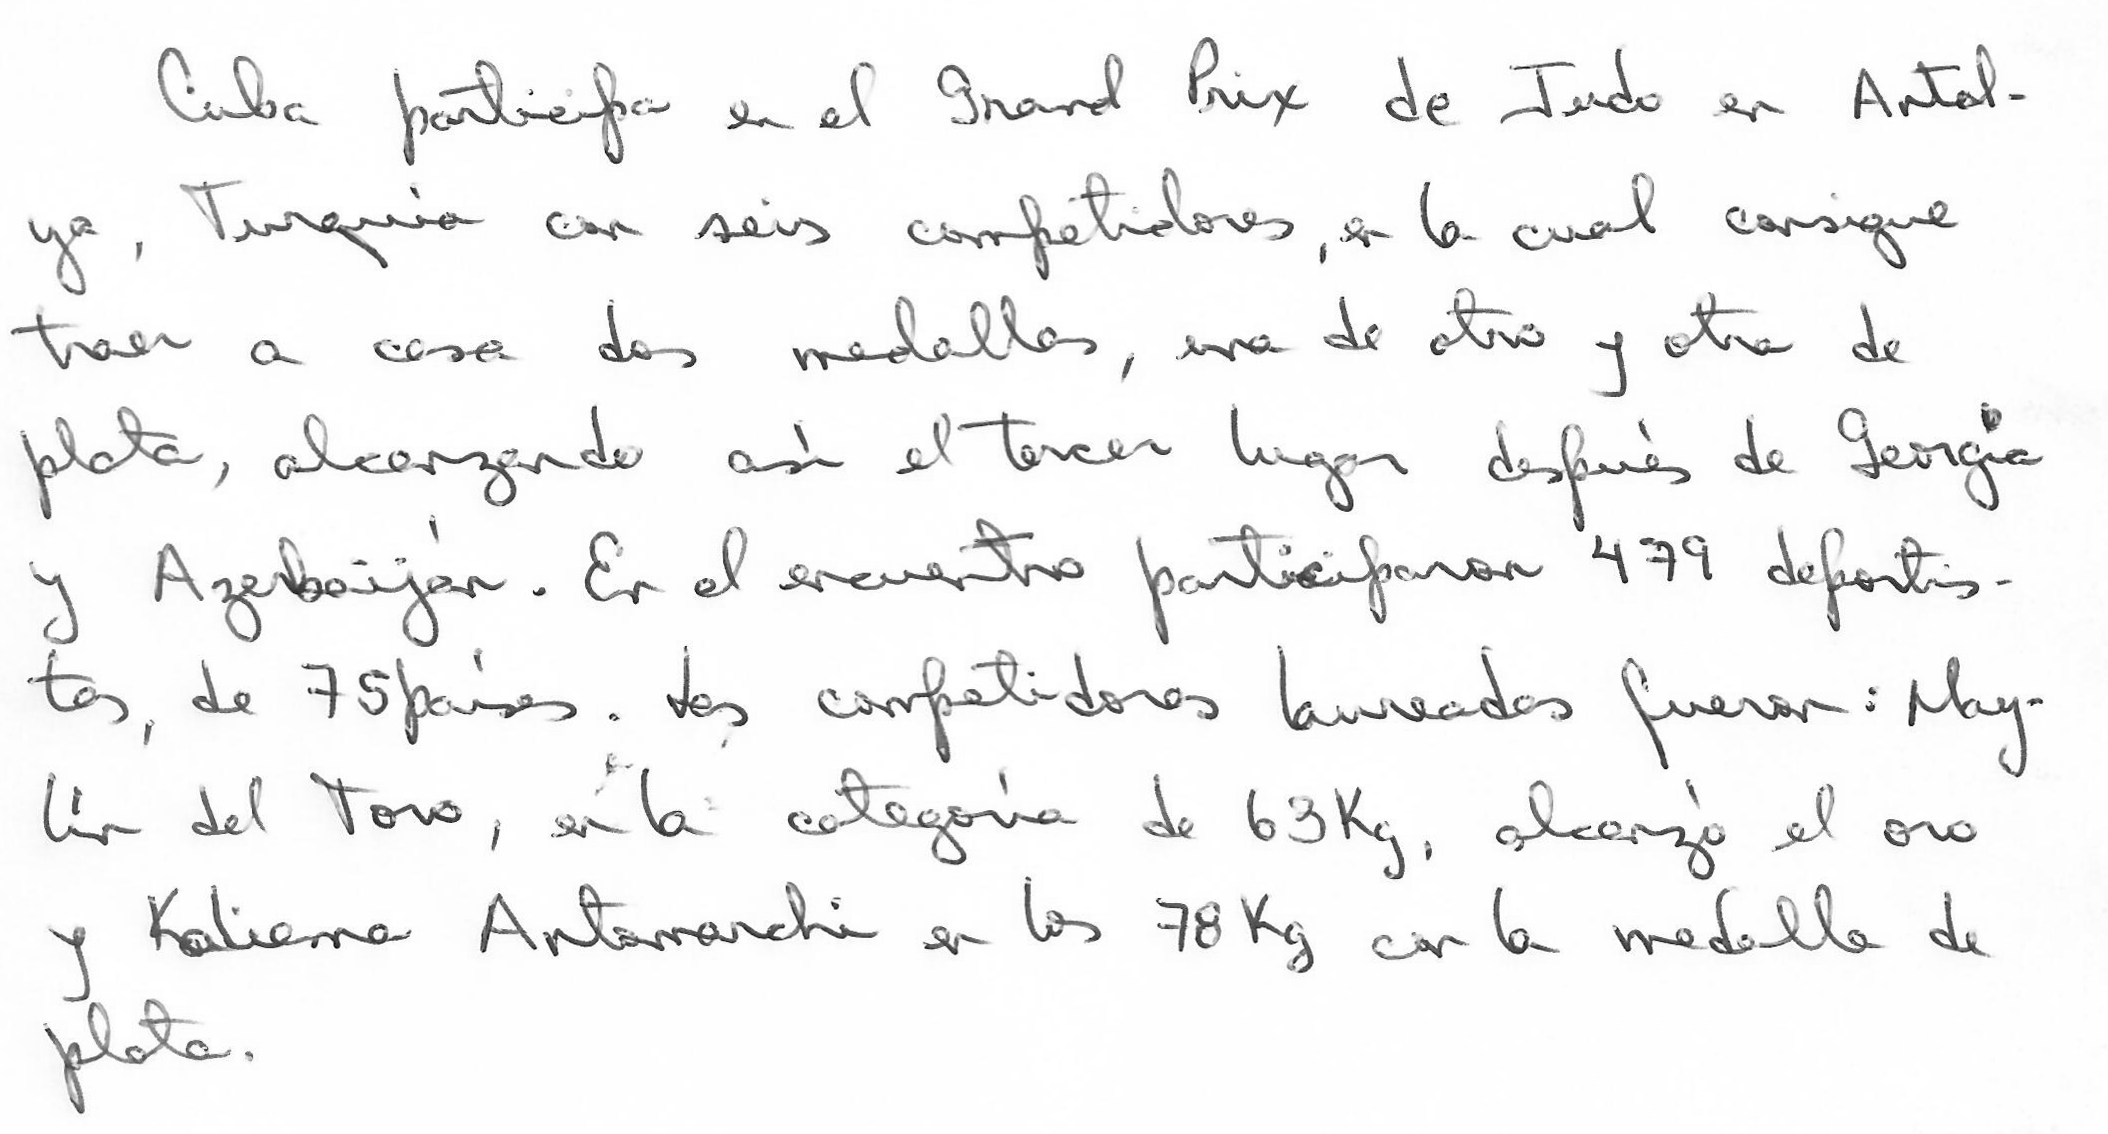 Cuba participa en el Grand Prix de Judo en Antal-
ya, Turquía con seis competidores, en la cual consigue
traer a casa dos medallas, una de otro y otra de
plata, alcanzando así el tercer lugar después de Georgia
y Azerbaiyán. En el encuentro participaron 479 deportis-
tas, de 75 países. Los competidores laureados fueron: May-
lín del Toro, en la categoría de 63Kg, alcanzó el oro
y Kaliema Antomarchi en los 78 Kg con la medalla de
plata.